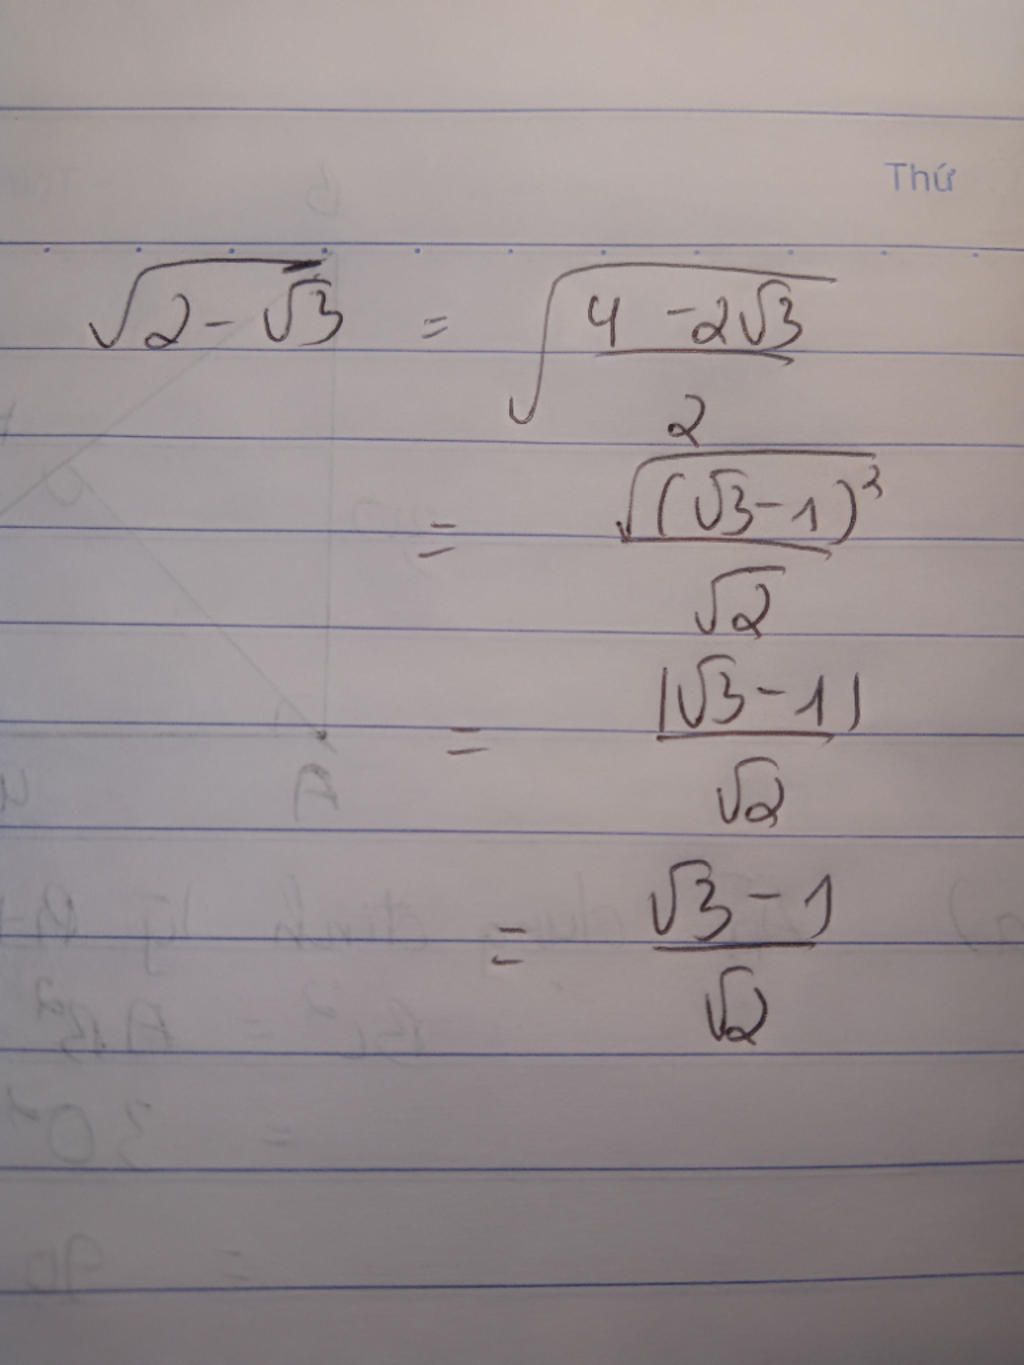 Thứ
√(2 - √3) = √((4 - 2√3)/2)
= √((√3 - 1)²)/√2
= |√3 - 1|/√2
= (√3 - 1)/√2